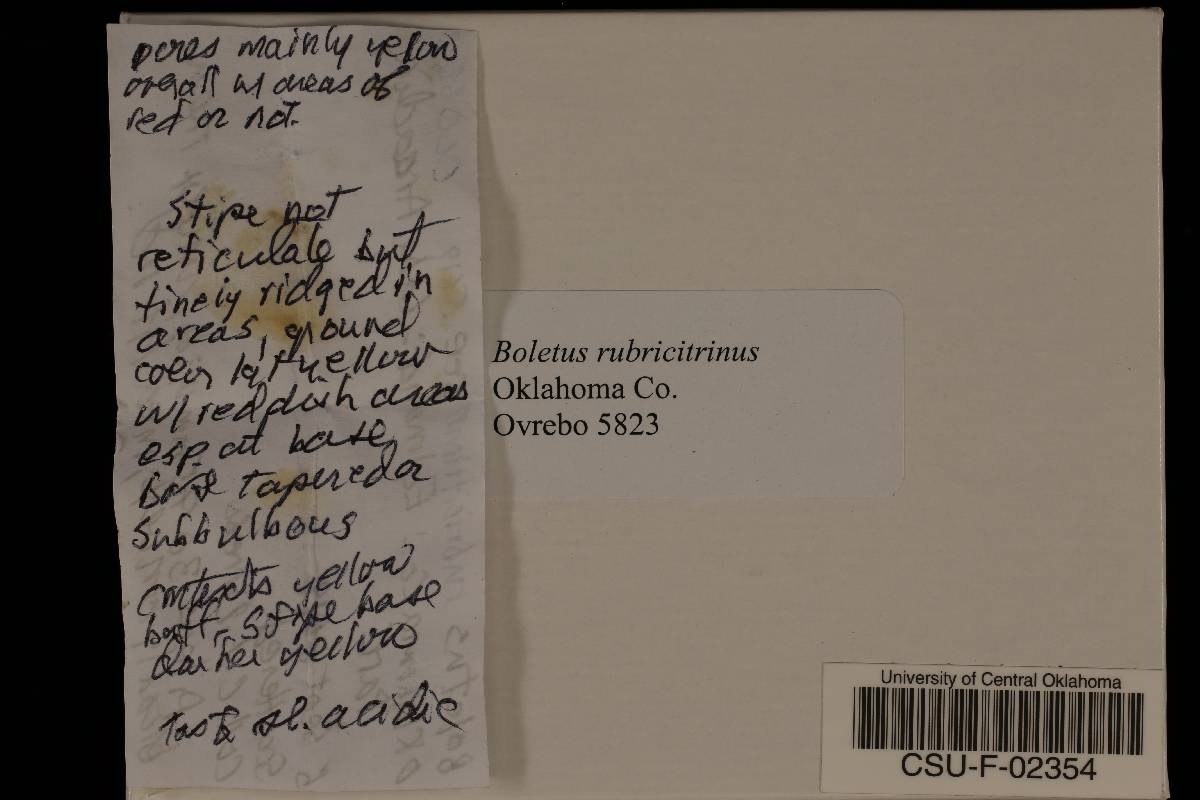 pores mainly yellow
overall w/ areas of
red or not.
Stipe not
reticulate but
finely ridged in
areas, ground
color lgt yellow
w/ reddish areas
esp. at base,
base tapered or
subbulbous
contexts yellow
buff, stipe base
darker yellow
taste sl. acidic
Boletus rubricitrinus
Oklahoma Co.
Ovrebo 5823
University of Central Oklahoma
CSU-F-02354